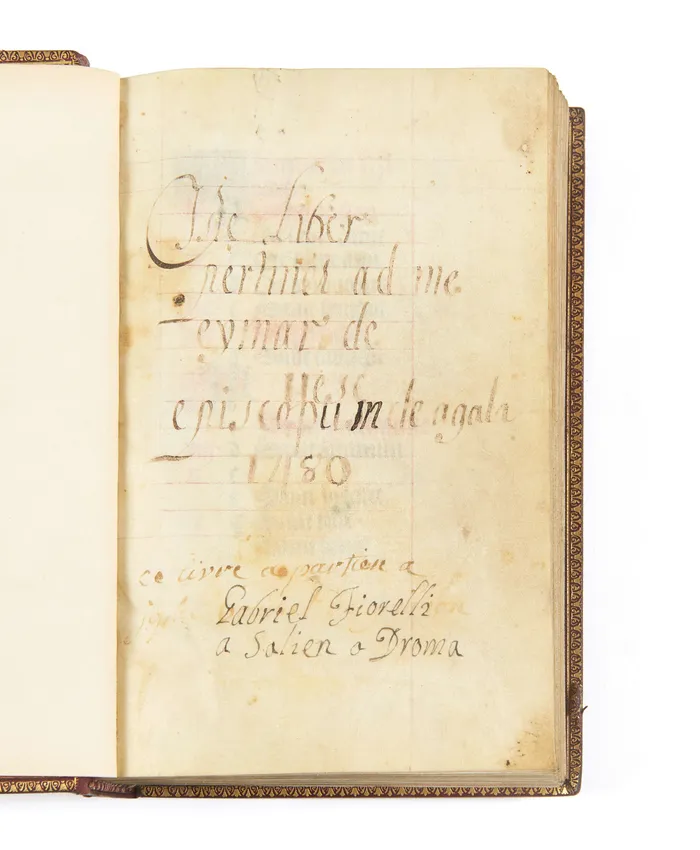 Iste Liber
pertinet ad me
eymar de
uese
episcopum de agala
1480
ce livre apartien a
Gabriel Fiorelli
a Salien o Droma